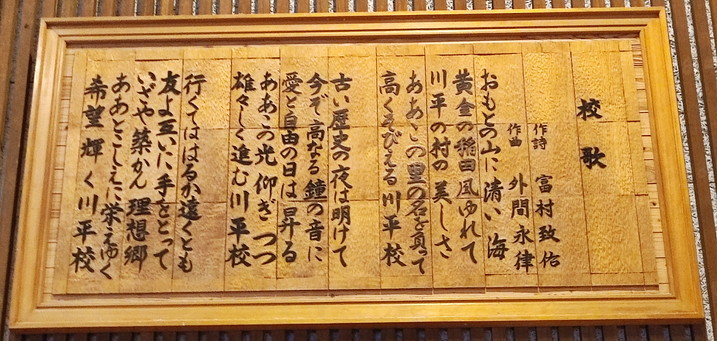 校歌
作詩 富村致佑
作曲 外間永律
おもとの山に清い海
黄金の稲田風ゆれて
川平の村の美しさ
ああこの里の名を負って
高くそびえる川平校
古い歴史の夜は明けて
今ぞ高なる鐘の音に
愛と自由の日は昇る
ああこの光仰ぎつつ
雄々しく進む川平校
行くてははるか遠くとも
友よ互いに手をとって
いざや築かん理想郷
ああとこしえに栄えゆく
希望輝く川平校